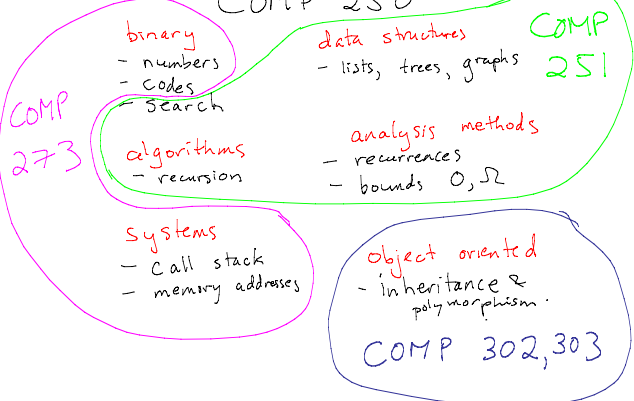 COMP 250
binary
- numbers
- codes
- search
data structures
- lists, trees, graphs
COMP
251
COMP
273
algorithms
- recursion
analysis methods
- recurrences
- bounds O, Ω
systems
- call stack
- memory addresses
object oriented
- inheritance &
polymorphism.
COMP 302, 303